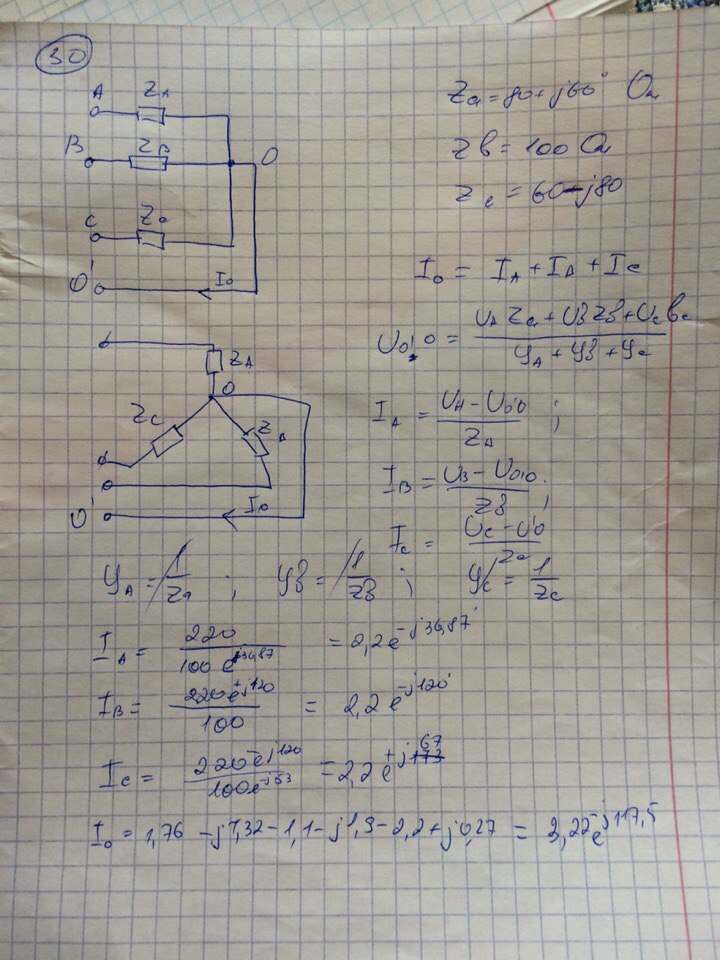 30
A Z_A
Z_a = 80 + j60 Ом
B Z_B O
Z_B = 100 Ом
C Z_C
Z_c = 60 - j80
O' I_0
I_0 = I_A + I_B + I_C
U_0'0 = (U_A Z_a + U_B Z_B + U_C B_c) / (Y_A + Y_B + Y_C)
Z_A
O
Z_C Z_B
I_A = (U_A - U_0'0) / Z_A ;
I_B = (U_B - U_0'0) / Z_B ;
O' I_0
I_C = (U_C - U'0) / Z_c
Y_A = 1/Z_a ; Y_B = 1/Z_B ; Y_C = 1/Z_c
I_A = 220 / 100 e^{j36,87} = 2,2 e^{-j36,87}
I_B = 220 e^{+j120} / 100 = 2,2 e^{-j120}
I_C = 220 e^{-j120} / 100 e^{-j53} = 2,2 e^{+j67}
I_0 = 1,76 - j1,32 - 1,1 - j1,9 - 2,2 + j0,27 = 3,22 e^{-j117,5}